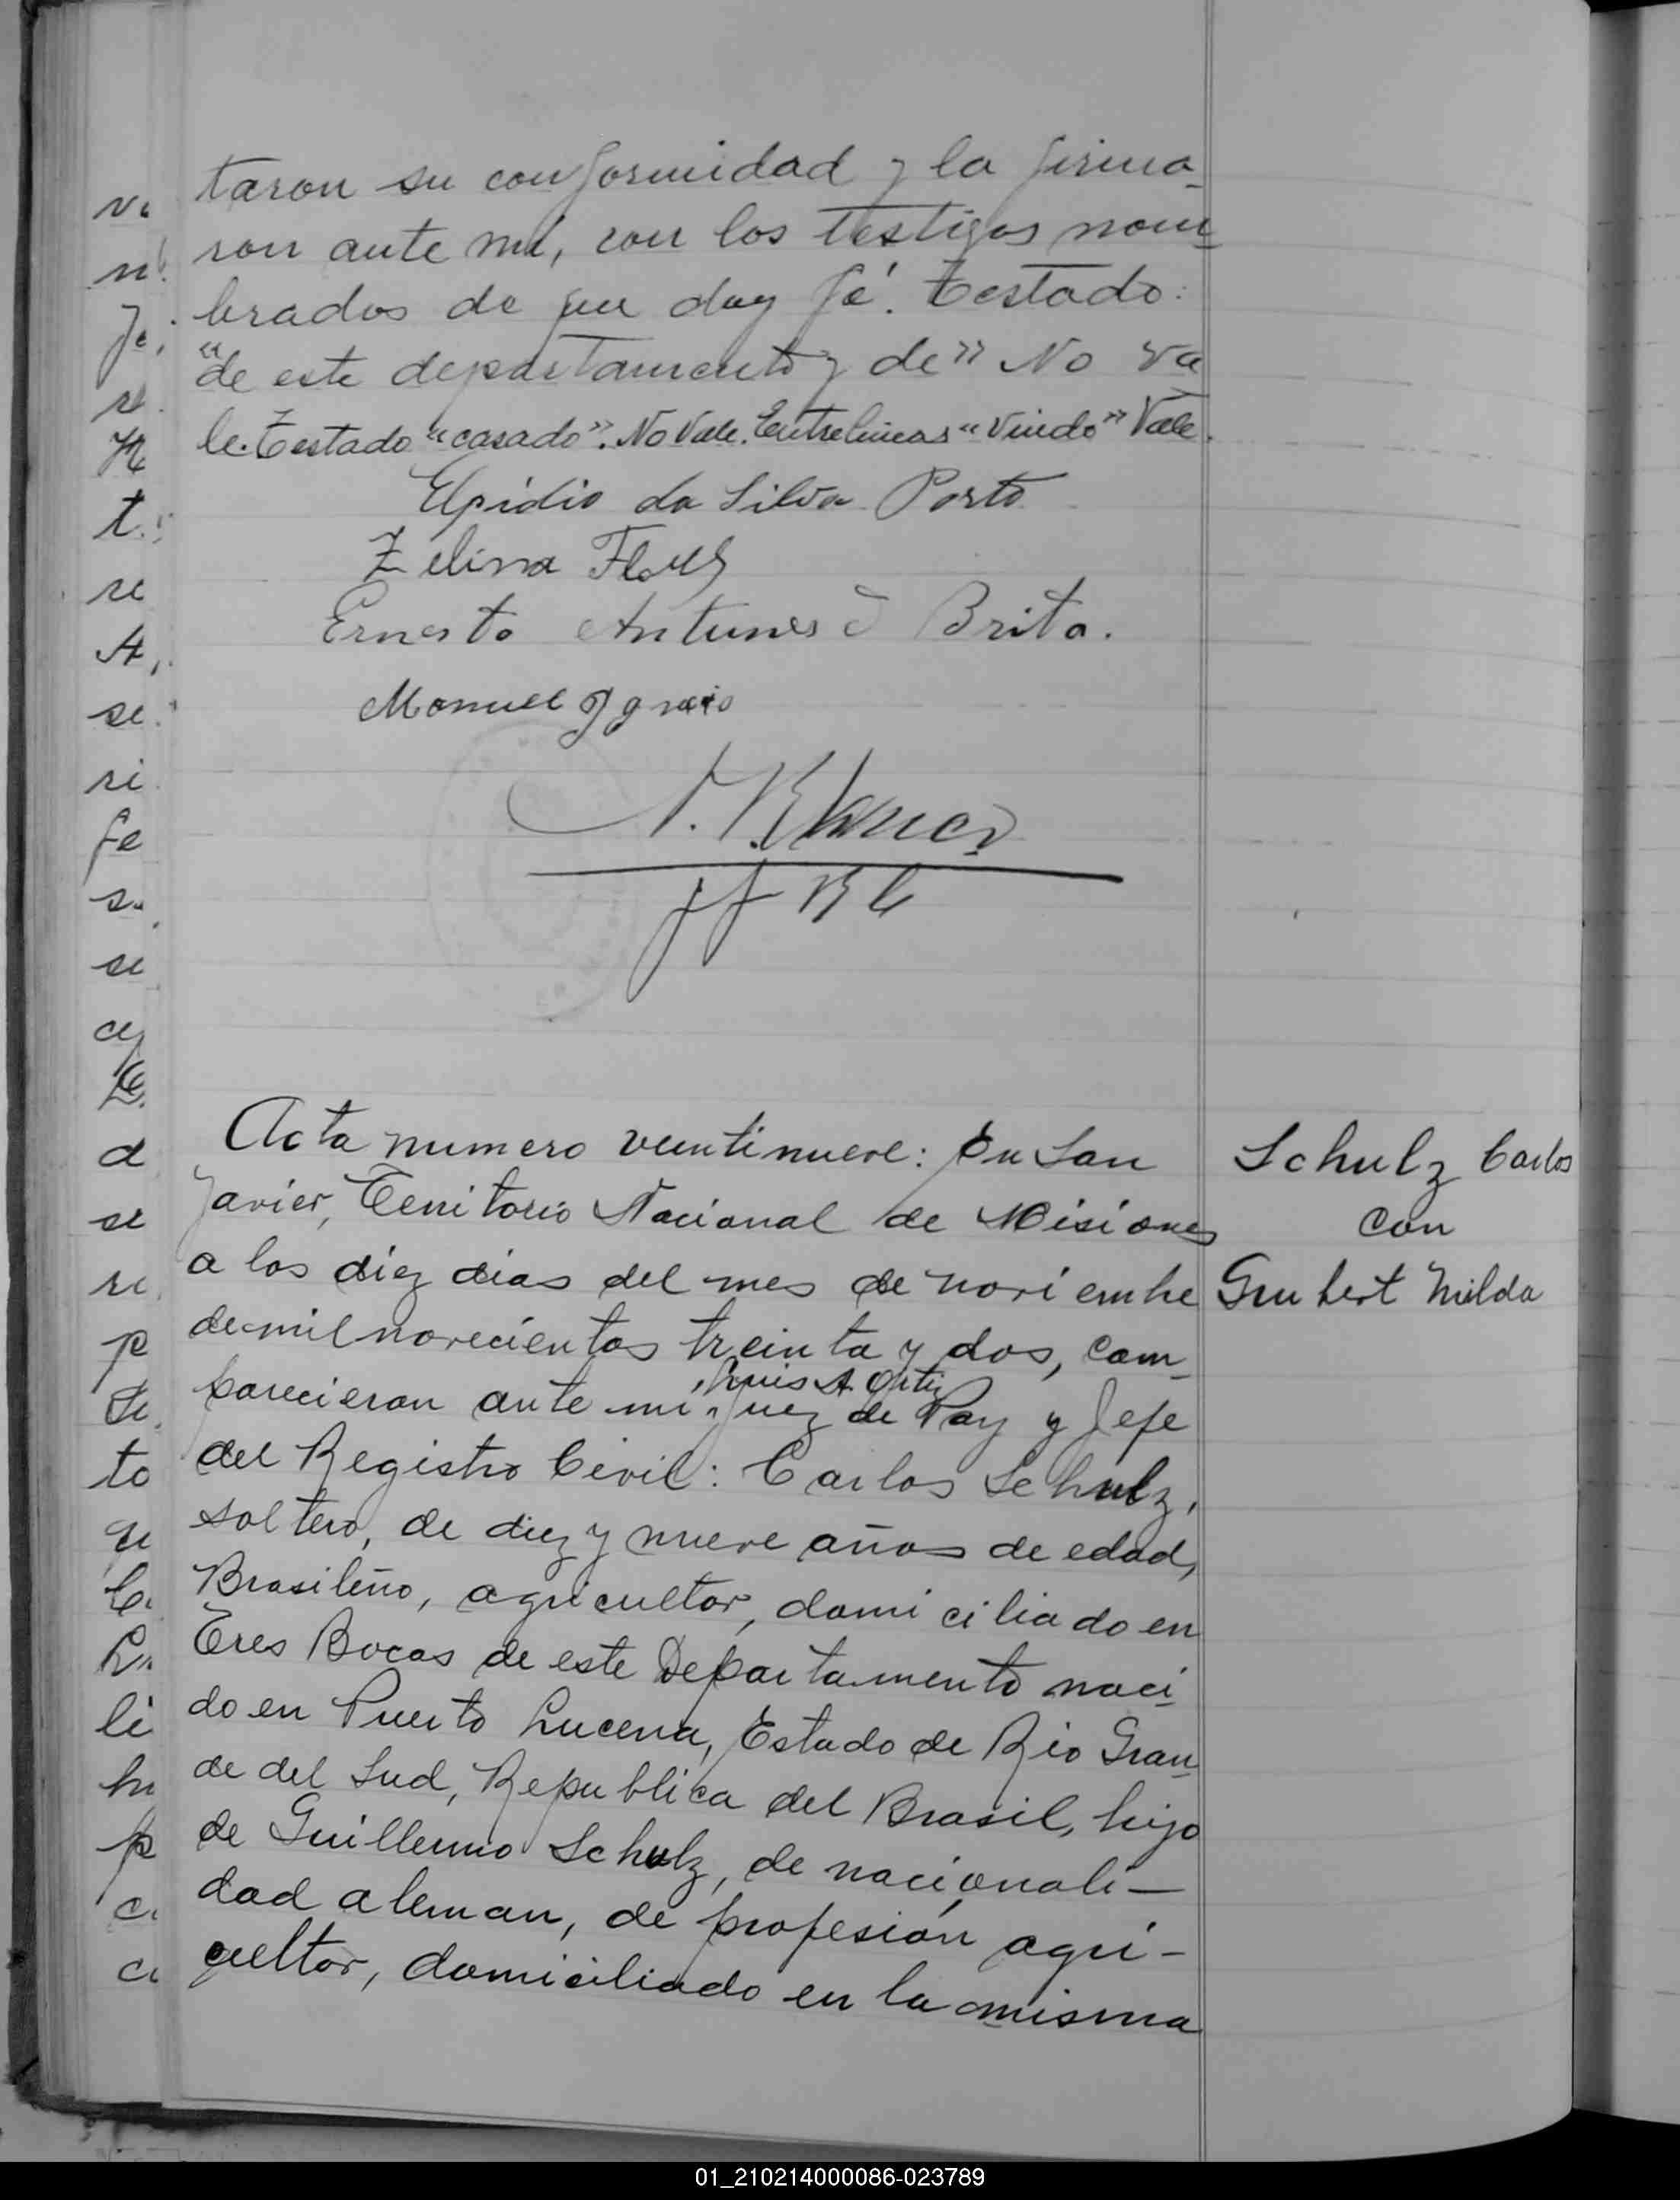 taron su conformidad y la firma-
ron ante mí, con los testigos nom-
brados de que doy fé. Testado:
"de este departamento y de" No va
le. Testado "casado". No Vale. Entrelineas "Viudo" Vale.
Elpidio da Silva Porto
Zelina Flores
Ernesto Antunes Brito.
Manuel Ignacio
Acta numero veintinueve: En San
Javier, Territorio Nacional de Misiones
a los diez dias del mes de noviembre
de mil novecientos treinta y dos, com-
parecieron ante mi, Luis A. Ortiz Juez de Paz y Jefe
del Registro Civil: Carlos Schulz,
soltero, de diez y nueve años de edad,
Brasileño, agricultor, domiciliado en
Tres Bocas de este Departamento naci-
do en Puerto Lucena, Estado de Rio Gran-
de del Sud, Republica del Brasil, hijo
de Guillermo Schulz, de nacionali-
dad aleman, de profesión agri-
cultor, domiciliado en la misma
Schulz Carlos
con
Milda
vi
re
A,
se
ri
fe
se
d
se
p
to
li
p
01_210214000086-023789